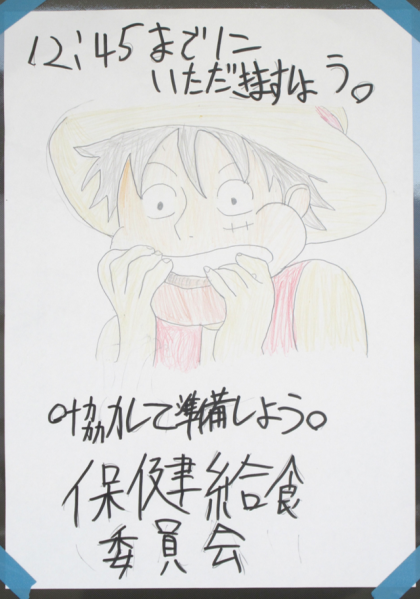 12:45までに
いただきましょう。
協力して準備しよう。
保健給食
委員会